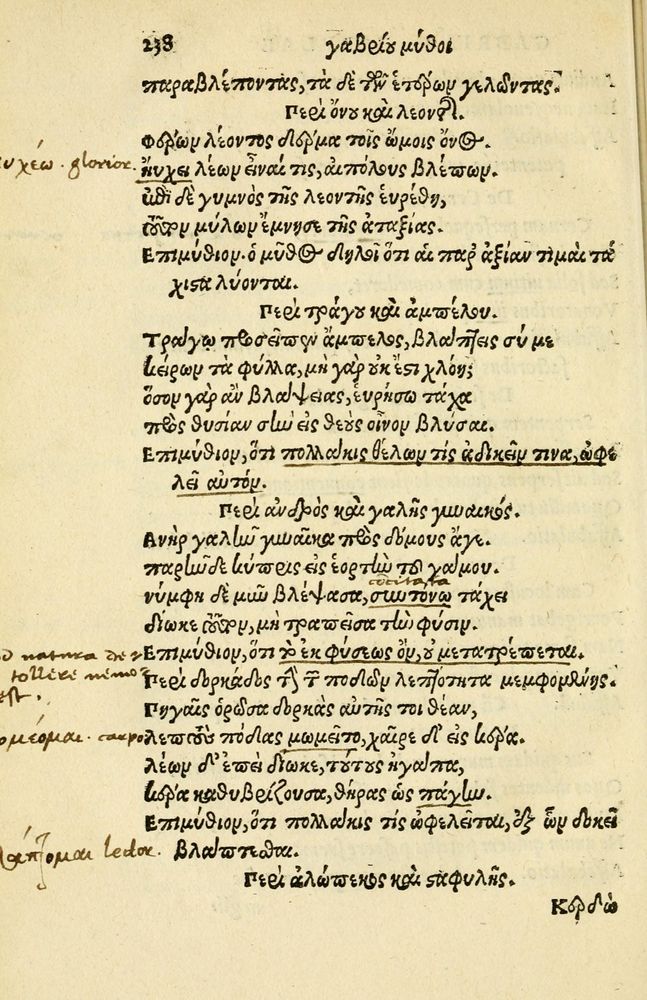 238 γαβρίου μύθοι
παραβλέποντας, τὰ δὲ τῶν ἑτέρων γελῶντας.
Περὶ ὄνου καὶ λέοντος.
Φέρων λέοντος δέρμα τοῖς ὤμοις ὄνος
ηὔχει λέων εἶναί τις, αἰπόλους βλέπων.
ἐπεὶ δὲ γυμνὸς τῆς λεοντῆς εὑρέθη,
μύλων ἔμνησε τῆς ἀταξίας.
Επιμύθιον. ὁ μῦθος δηλοῖ ὅτι αἱ παρ᾽ ἀξίαν τιμαὶ τά
χιστα λύονται.
Περὶ τράγου καὶ ἀμπέλου.
Τράγῳ προσεῖπεν ἄμπελος, βλάπτεις σύ με
κείρων τὰ φύλλα, μὴ γὰρ οὐκ ἔστι χλόη;
ὅσον γὰρ ἂν βλάψειας, εὑρήσω τάχα
πρὸς θυσίαν σὴν εἰς θεοὺς οἶνον βλύσαι.
Επιμύθιον, ὅτι πολλάκις θέλων τίς ἀδικεῖν τινα, ὠφε
λεῖ αὐτόν.
Περὶ ἀνδρὸς καὶ γαλῆς γυναικός.
Ανὴρ γαλῆν γυναῖκα πρὸς δόμους ἄγε.
παρῆν δὲ κύπρις εἰς ἑορτὴν τοῦ γάμου.
νύμφη δὲ μῦν βλέψασα, συντόνῳ τάχει
δίωκε τοῦτον, μὴ τραπεῖσα τὴν φύσιν.
Επιμύθιον, ὅτι τὸ ἐκ φύσεως ὂν, οὐ μετατρέπεται.
Περὶ δορκάδος τὴν τῶν ποδῶν λεπτότητα μεμφομένης.
Πηγαῖς ὁρῶσα δορκὰς αὐτῆς τοι θέαν,
λεπτοὺς πόδας μωμεῖτο, χαῖρε δ᾽ εἰς κέρα.
λέων δ᾽ ἐπεὶ δίωκε, τούτους ᾔγαλπα,
κέρα καθυβρίζουσα, θήρας ὡς πάγην.
Επιμύθιον, ὅτι πολλάκις τίς ὠφελεῖται, ἐξ ὧν δοκεῖ
βλάπτεσθαι.
Περὶ ἀλώπεκος καὶ σταφυλῆς.
Κερδὼ
glorior.
natura
tollere nemo
est.
ledor.